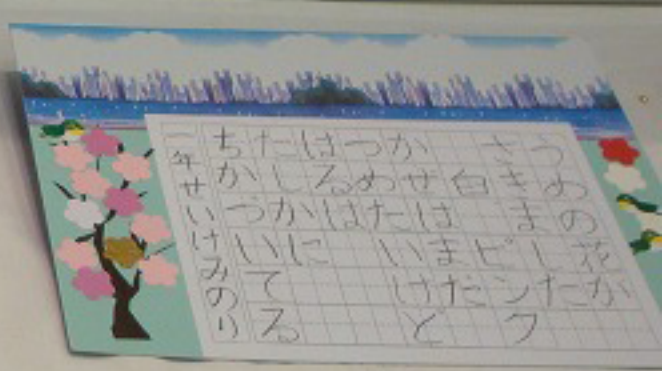 うめの花が
さきました
白 ピンク
かぜはまだ
つめたいけど
はるは
たしかに
ちかづいてる
一年せいけみのり